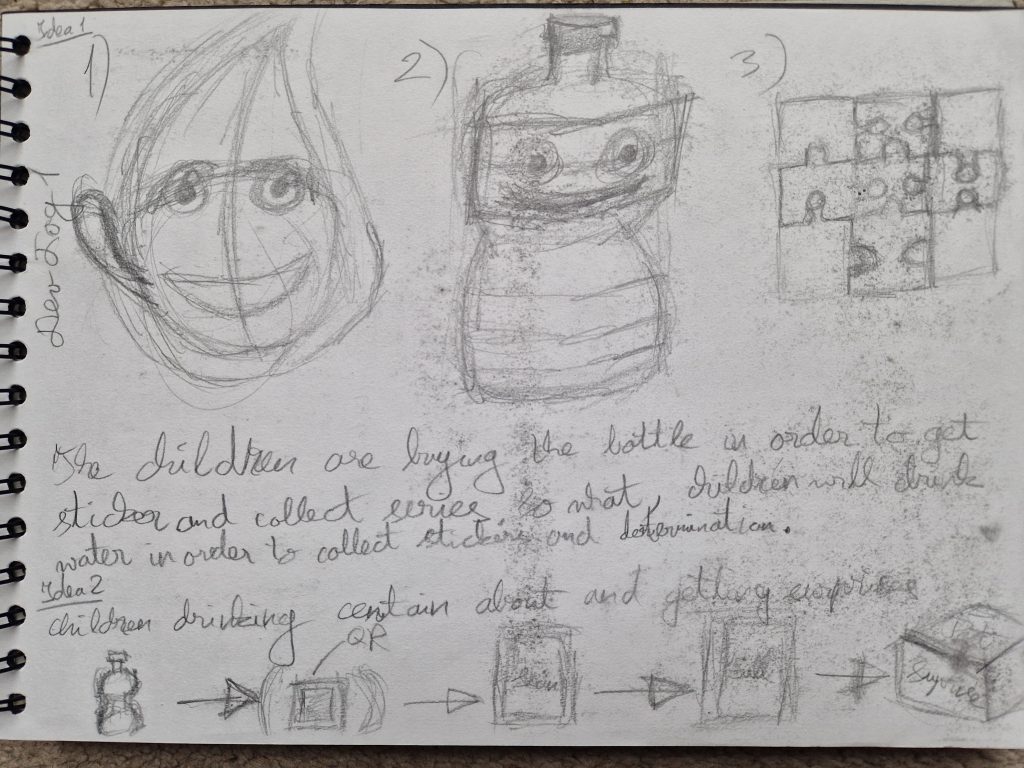 Idea 1
1)
2)
3)
The children are buying the bottle in order to get
sticker and collect series. So what, children will drink
water in order to collect stickers and determination.
Idea 2
children drinking centain about and getting surprises
QR
Surprise